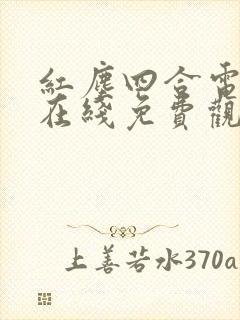 紅塵四合電
在綫免費觀
上善若水370a